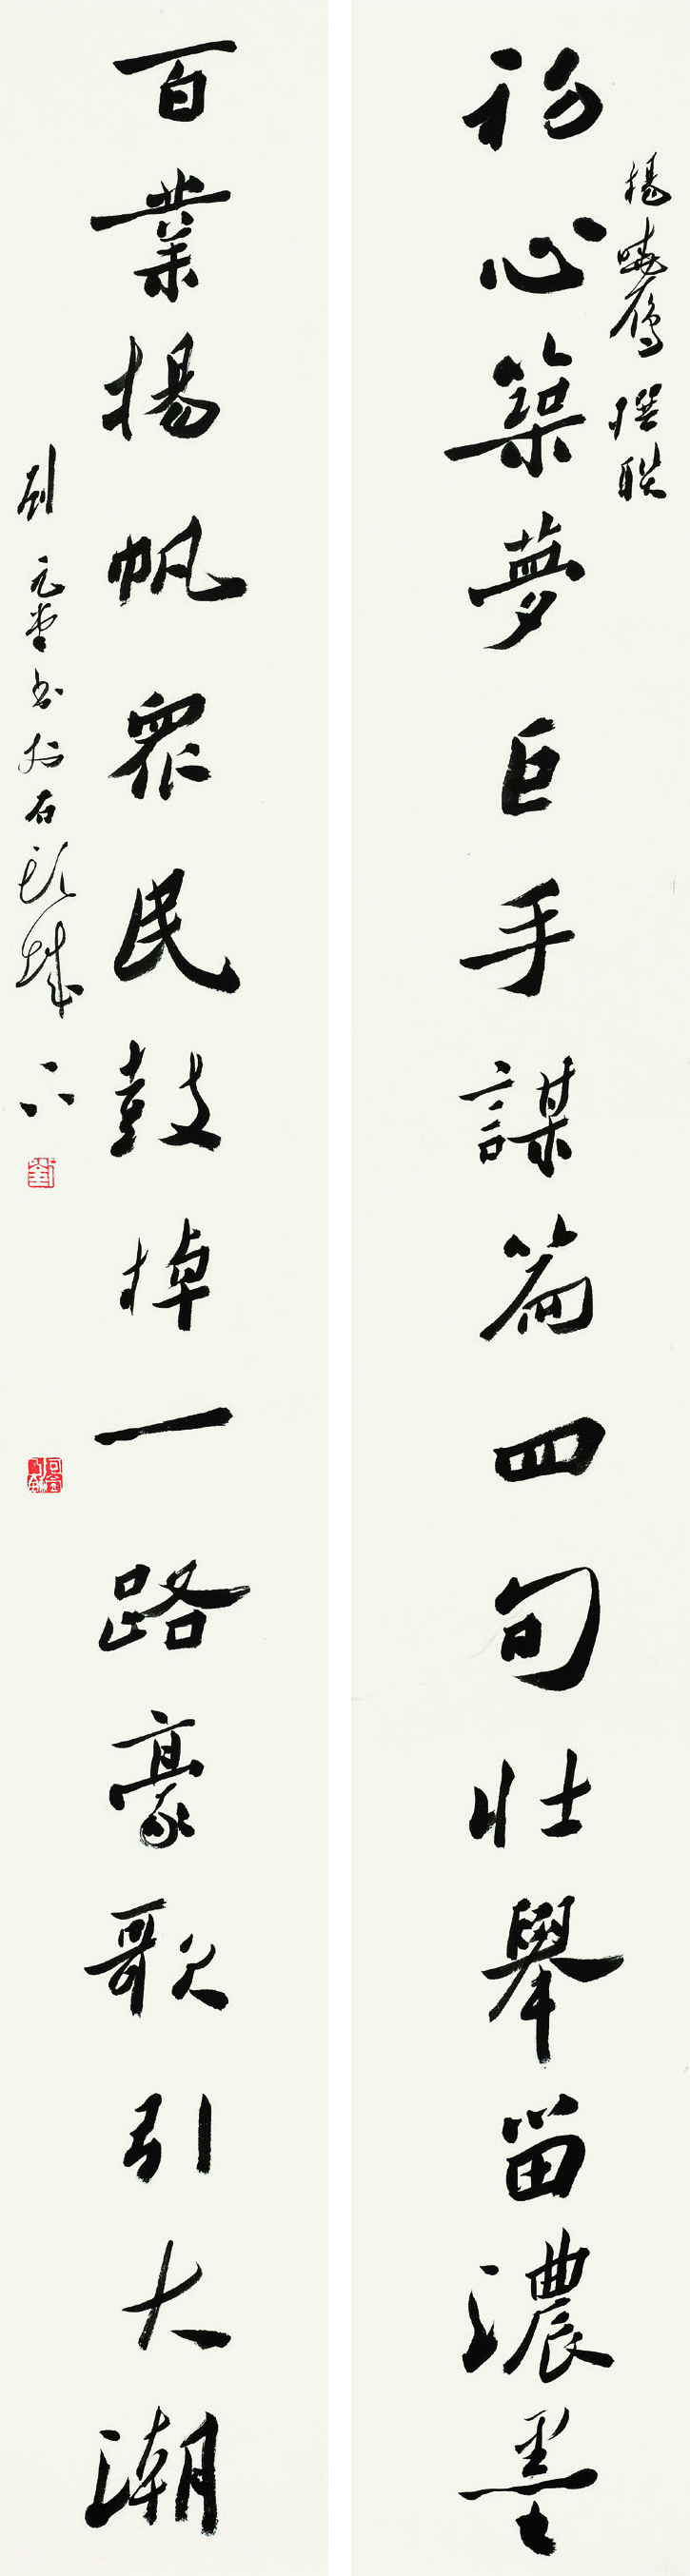 楊曉鷹撰联
初心築夢巨手謀篇四句壯舉留濃墨
百業揚帆眾民鼓棹一路豪歌引大潮
劉元堂书於石頭城下